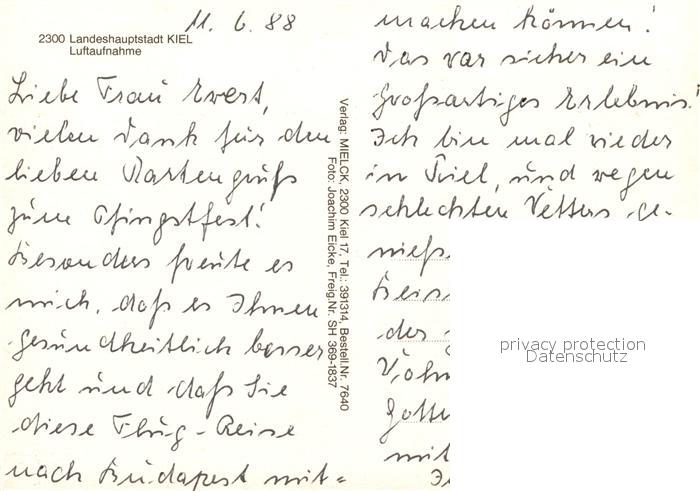 11. 6. 88
2300 Landeshauptstadt KIEL
Luftaufnahme
Liebe Frau Ewert,
vielen Dank für den
lieben Kartengruß
zum Pfingstfest!
Besonders freute es
mich, daß es Ihnen
gesundheitlich besser
geht und daß Sie
diese Flug-Reise
nach Budapest mit=
Verlag: MIELCK, 2300 Kiel 17, Tel.: 391314, Bestell.Nr. 7640
Foto: Joachim Eicke, Freig.Nr. SH 369-1837
machen können!
Das war sicher ein
großartiges Erlebnis!
Ich bin mal wieder
in Kiel, und wegen
schlechten Wetters ge-
nieß
der
mit
privacy protection
Datenschutz